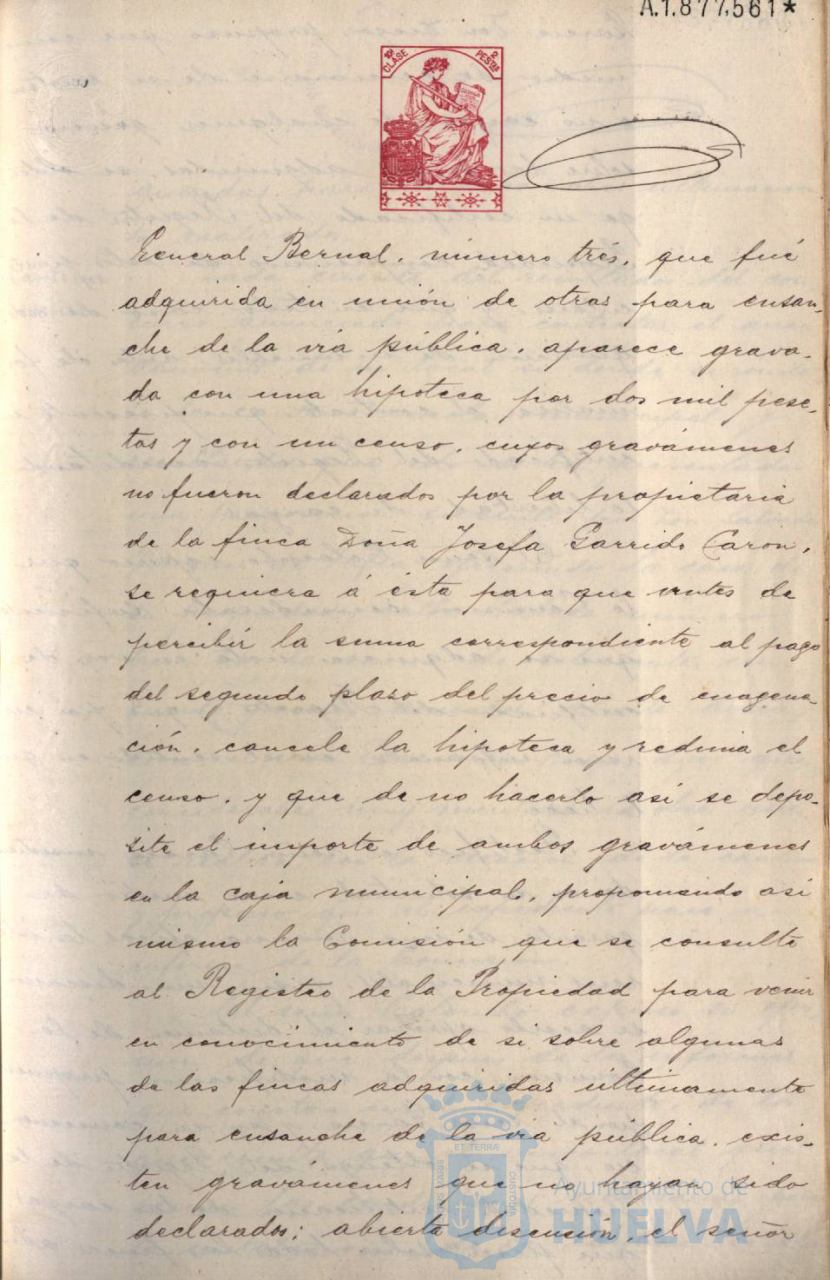 A.1.877,561*
10ª CLASE
2 PESTAS
General Bernal, número trés, que fué
adquirida en unión de otras para ensan-
che de la via pública, aparece grava-
da con una hipoteca por dos mil pese-
tas y con un censo, cuyos gravámenes
no fueron declarados por la propietaria
de la finca Doña Josefa Garrido Caron,
se requiera á ésta para que antes de
percibir la suma correspondiente al pago
del segundo plaso del precio de enagena
ción, cancele la hipoteca y redima el
censo, y que de no hacerlo así se depo-
site el importe de ambos gravámenes
en la caja municipal, proponiendo asi
mismo la Comisión que se consulte
al Registro de la Propiedad para venir
en conocimiento de si sobre algunas
de las fincas adquiridas últimamente
para ensanche de la via pública, exis-
ten gravámenes que no hayan sido
declarados; abierta discusión, el señor
Ayuntamiento de
HUELVA